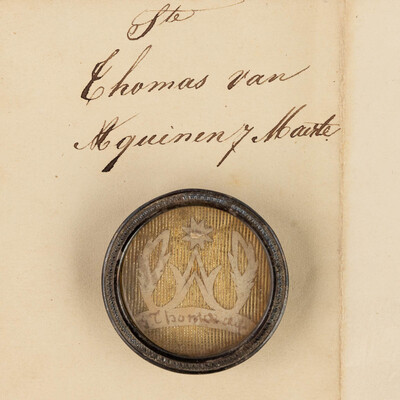 Ste
Thomas van
Aquinen 7 Marte
S Thomas de